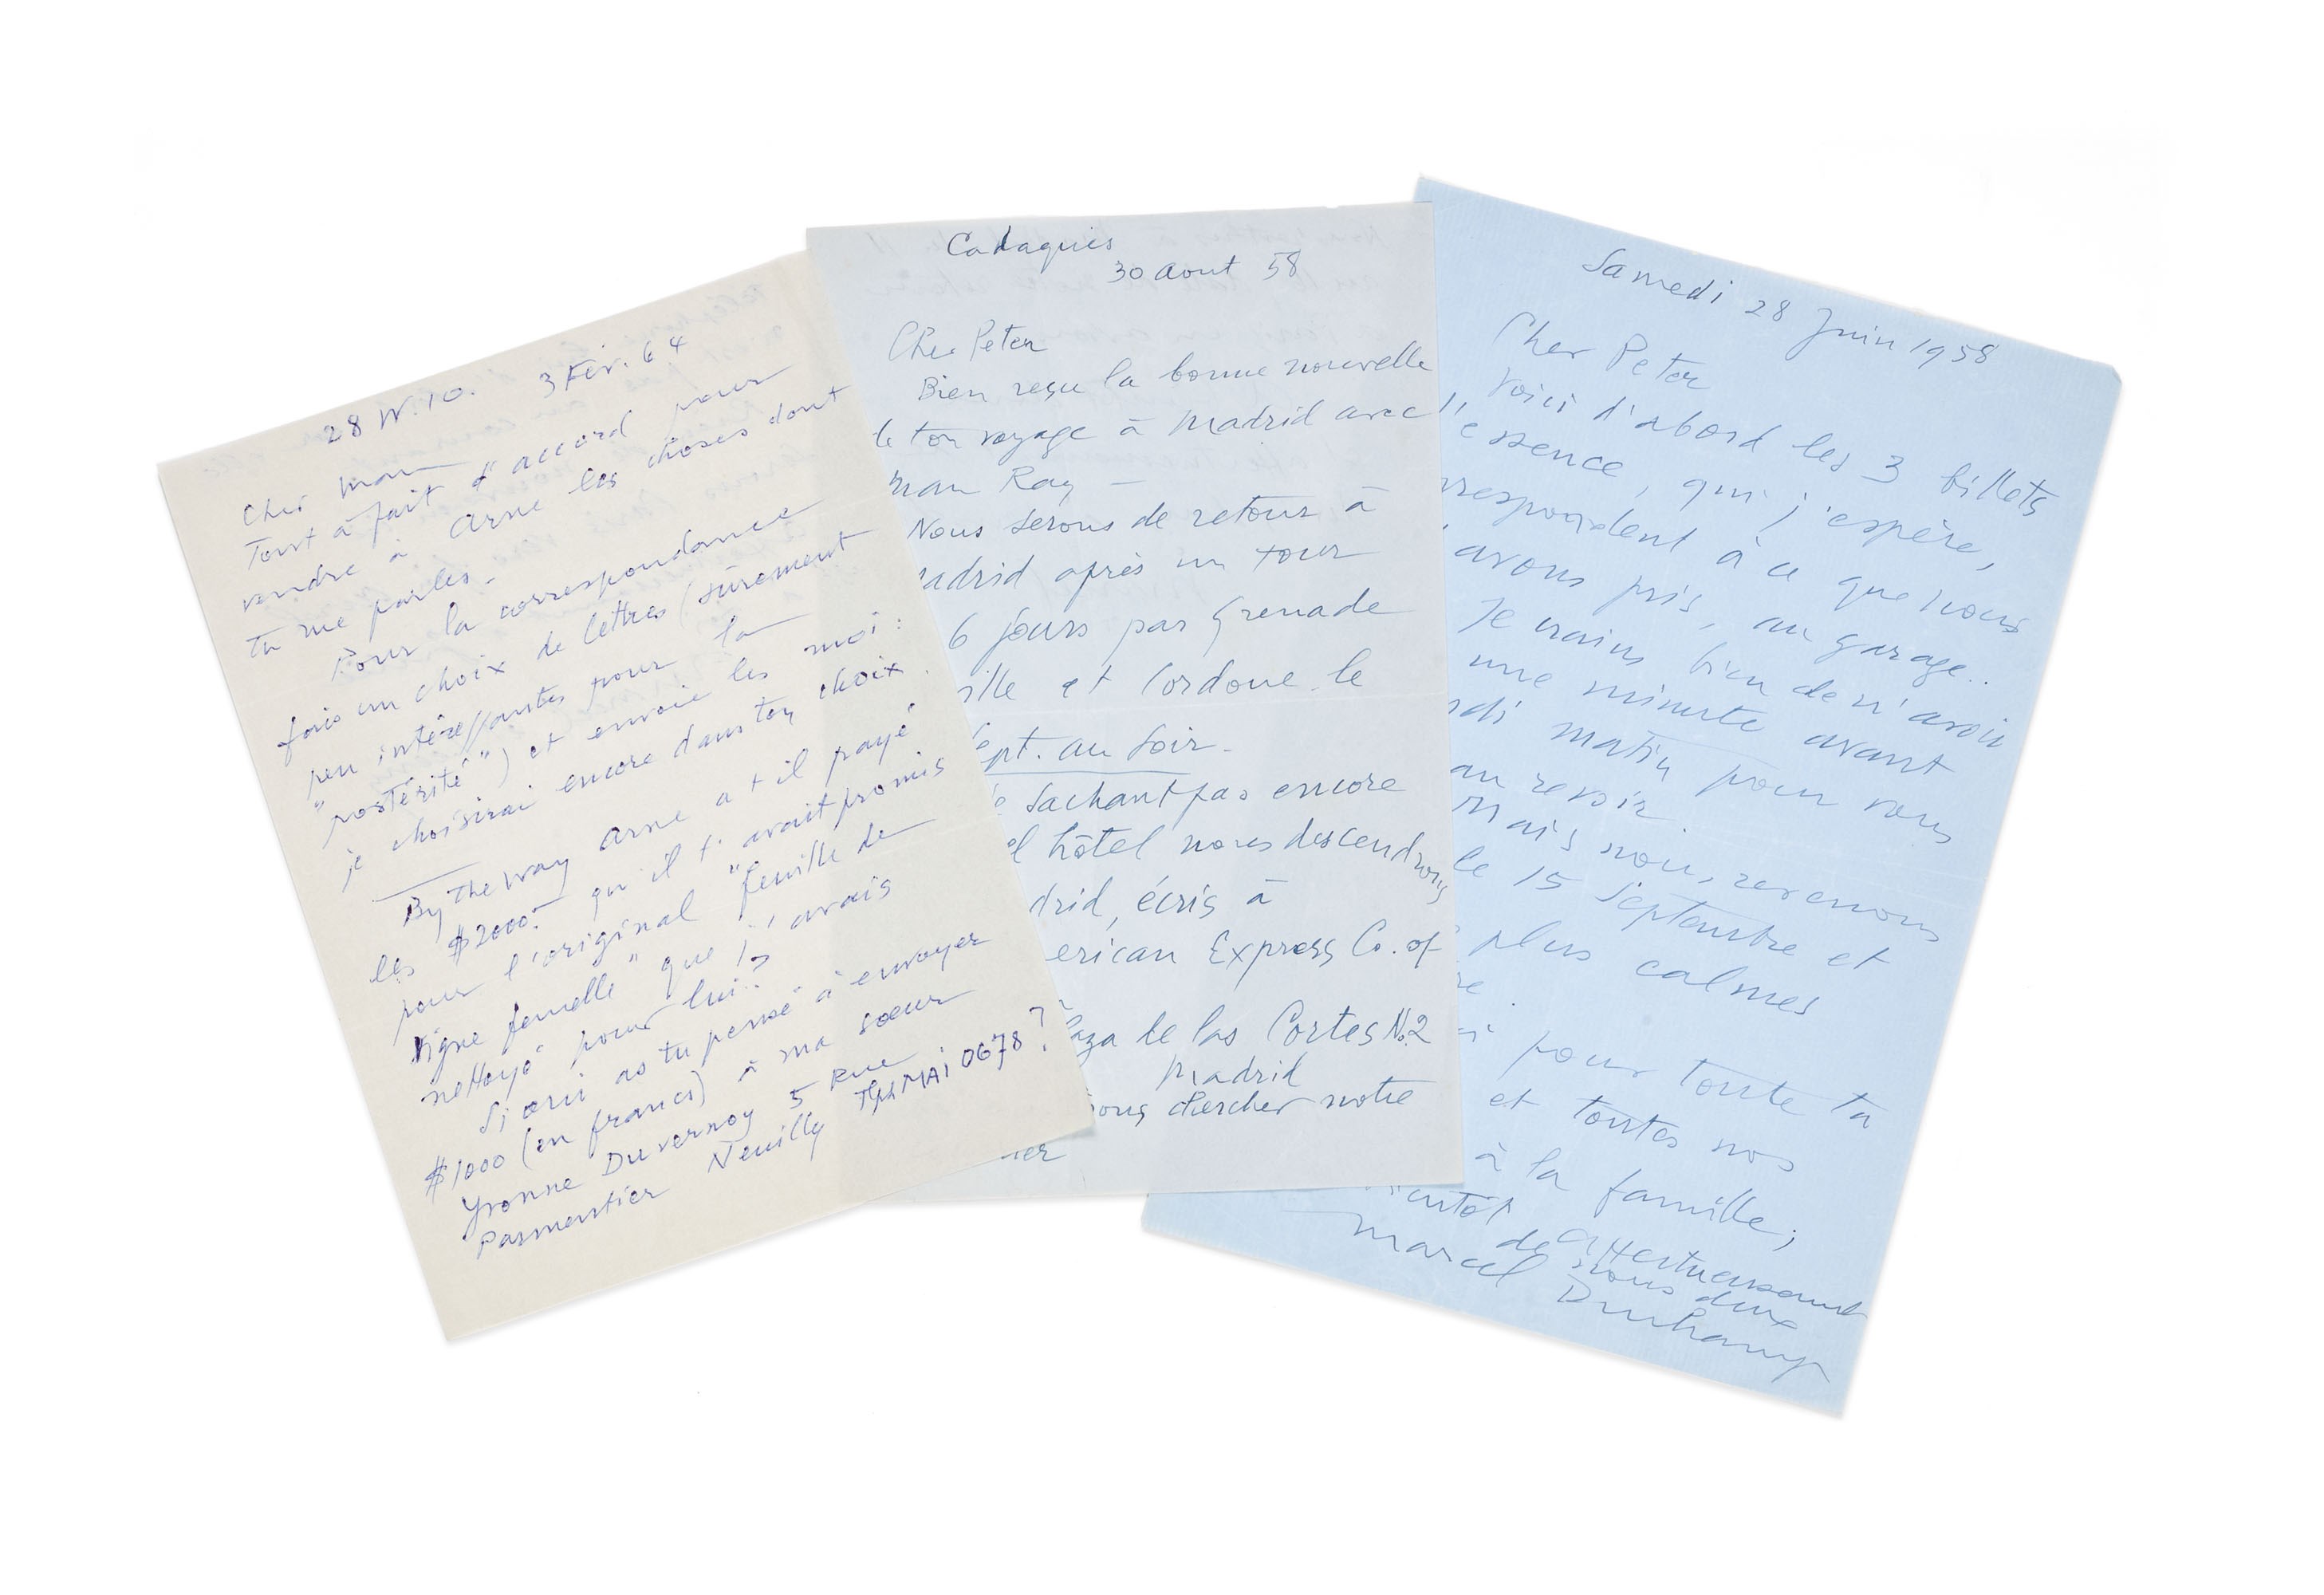 28 W. 10. 3 Fév. 64
Cher Man
Tout à fait d'accord pour
vendre à Arne les choses dont
tu me parles.
Pour la correspondance
fais un choix de lettres (sûrement
peu intéressantes pour la
"postérité") et envoie les moi:
je choisirai encore dans ton choix.
By the way Arne a t il payé
les $2000.- qu'il t'avait promis
pour l'original "feuille de
vigne femelle" que j'avais
nettoyé pour lui?
Si oui as tu pensé à envoyer
$1000 (en francs) à ma sœur
Yvonne Duvernoy 5 Rue
Parmentier Neuilly Tph MAI 0678?
Cadaquès
30 Aout 58
Cher Peter
Bien reçu la bonne nouvelle
de ton voyage à Madrid avec
man Ray —
Nous serons de retour à
adrid après un tour
6 jours par Grenade
ille et Cordoue le
ept. au soir.
sachant pas encore
el hôtel nous descendrons
drid, écris à
erican Express Co. of
aza de las Cortes No.2
Madrid
ons chercher notre
ier
Samedi 28 Juin 1958
Cher Peter
Voici d'abord les 3 billets
l'essence, qui j'espère,
rrespondent à ce que nous
avons pris, au garage..
Je crains bien de n'avoir
une minute avant
rdi matin pour vous
au revoir.
Mais nous revenons
le 15 Septembre et
plus calmes
re.
i pour toute ta
et toutes nos
à la famille;
ientôt affectueusement
de nous deux
Marcel Duchamp